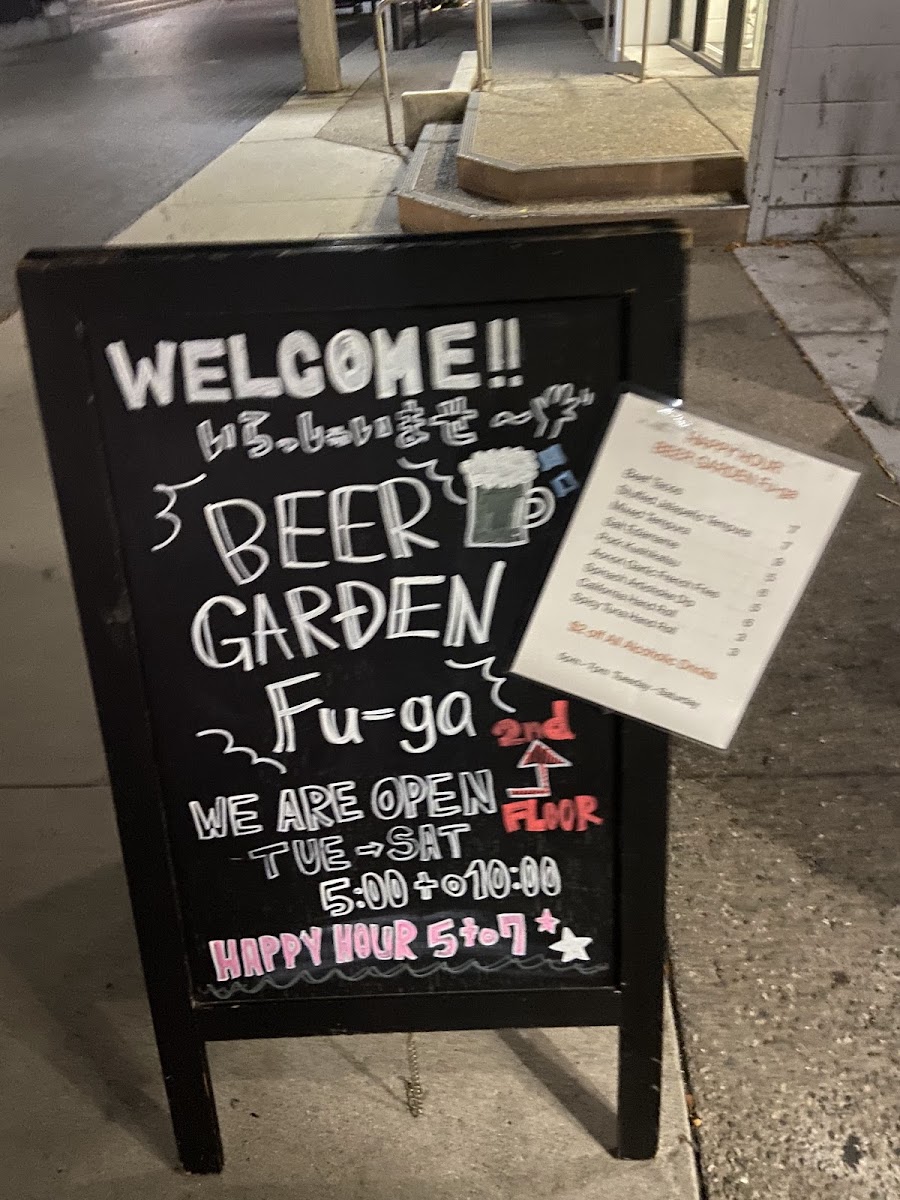 WELCOME!!
いらっしゃいませ〜
BEER
GARDEN
Fu=ga
2nd
FLOOR
WE ARE OPEN
TUE→SAT
5:00 to 10:00
HAPPY HOUR 5 to 7
HAPPY HOUR
BEER GARDEN Fu-ga
Beef Tataki
Stuffed Jalapeño Tempura 7
Mixed Tempura 7
Salt Edamame
Pork Kushikatsu
Anori Garlic French Fries
Spinach Artichoke Dip
California Hand Roll
Spicy Tuna Hand Roll 3
$2 off All Alcoholic Drinks
5pm - 7pm Tuesday - Saturday